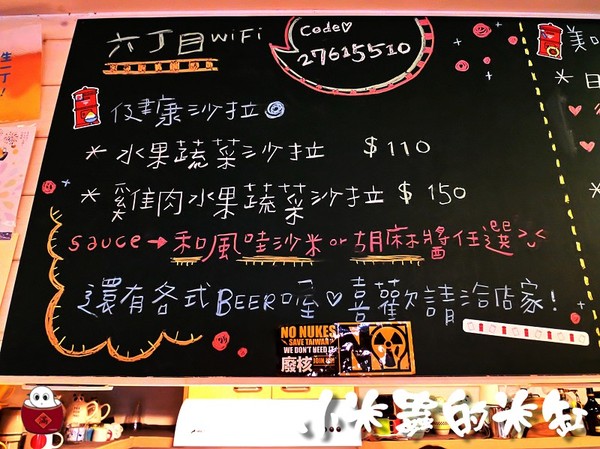 六丁目WiFi
Code♡
27615510
健康沙拉
* 水果蔬菜沙拉 $110
* 雞肉水果蔬菜沙拉 $150
sauce→和風哇沙米or胡麻醬任選
還有各式BEER喔♡喜歡請洽店家!
NO NUKES
SAVE TAIWAN
WE DON'T NEED IT
廢核
美
* 日
生
一丁
!
小米蟲的米缸